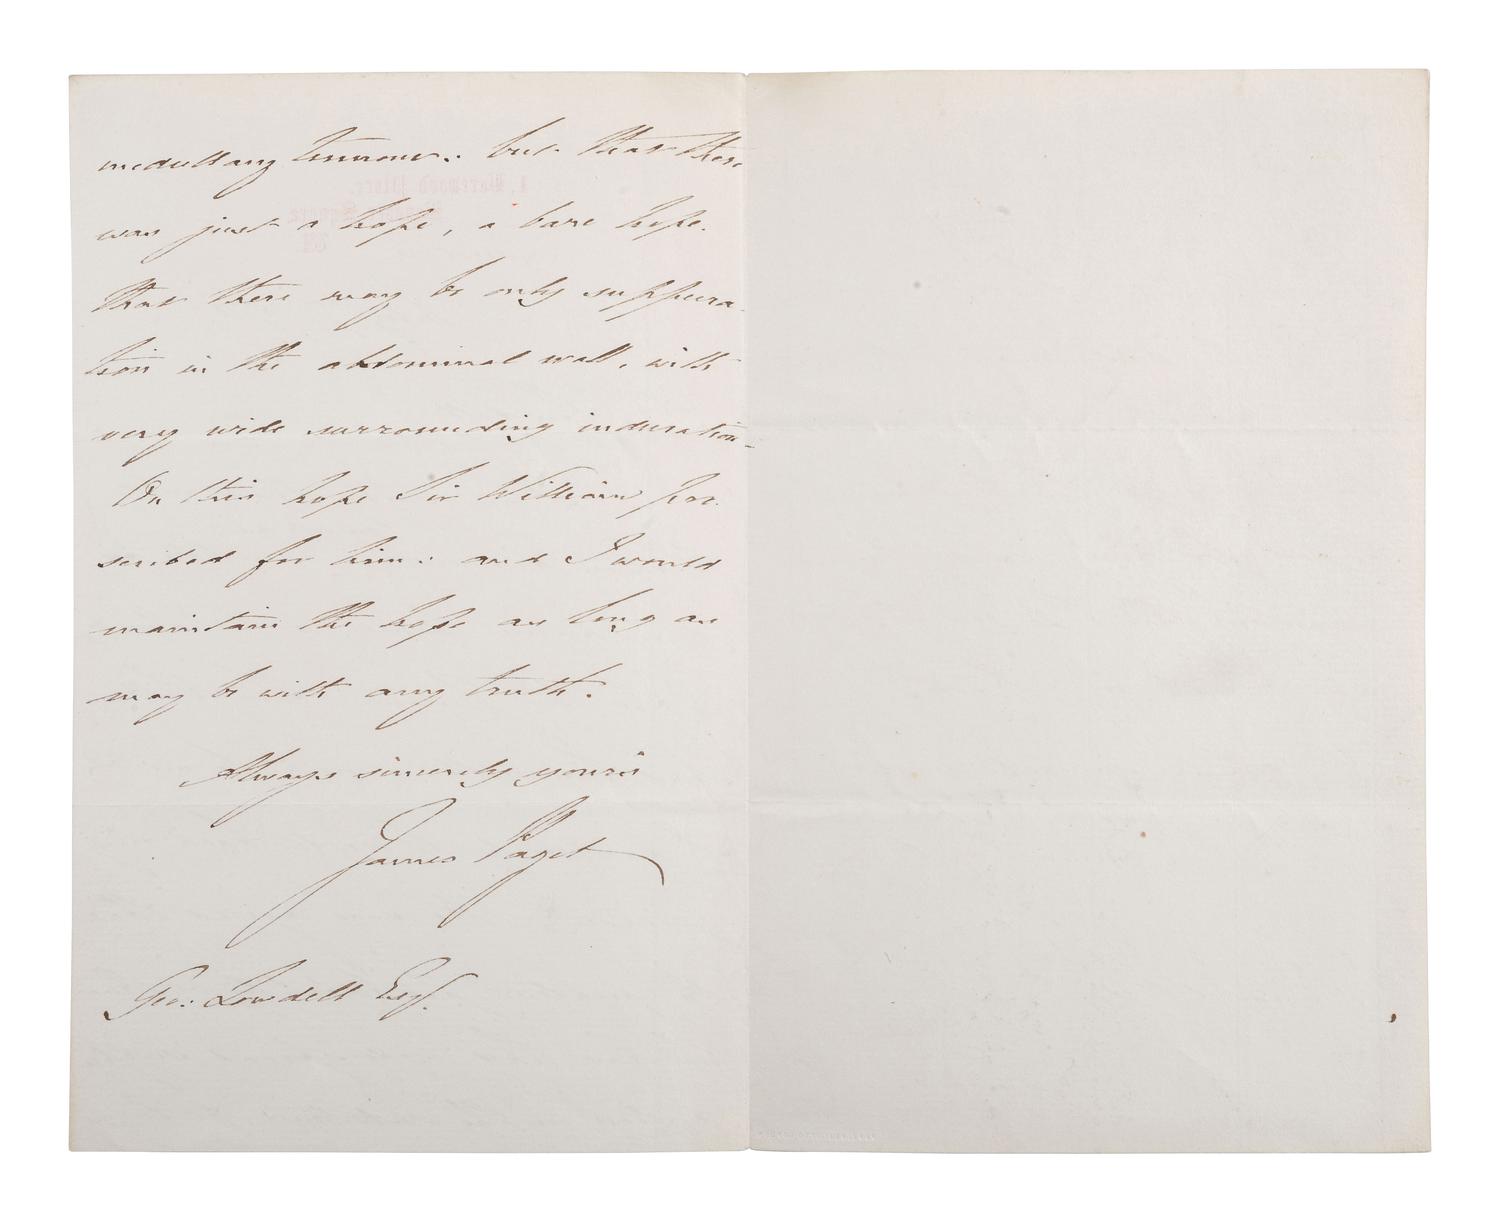 medullary tumour: but that there
was just a hope, a bare hope.
that there may be only suppura-
tion in the abdominal wall, with
very wide surrounding induration.
On this hope Sir William pre-
scribed for him: and I would
maintain the hope as long as
may be with any truth.
Always sincerely yours
James Paget
Geo: Lowdell Esq.